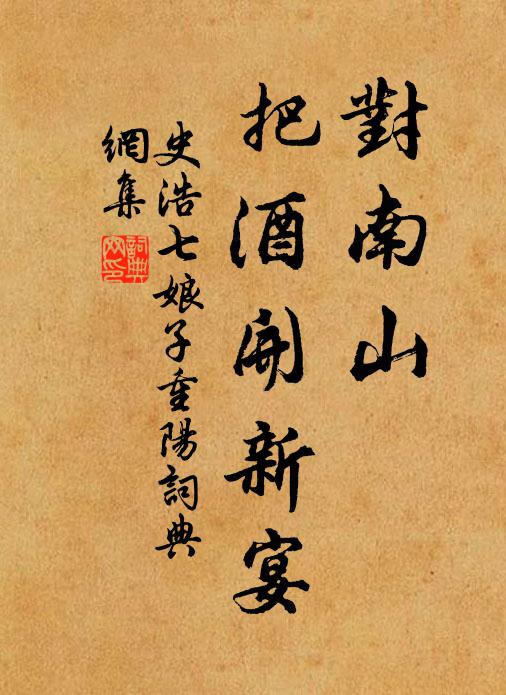 對南山
把酒開新宴
史浩七娘子重陽詞典
網集
詞典
网印